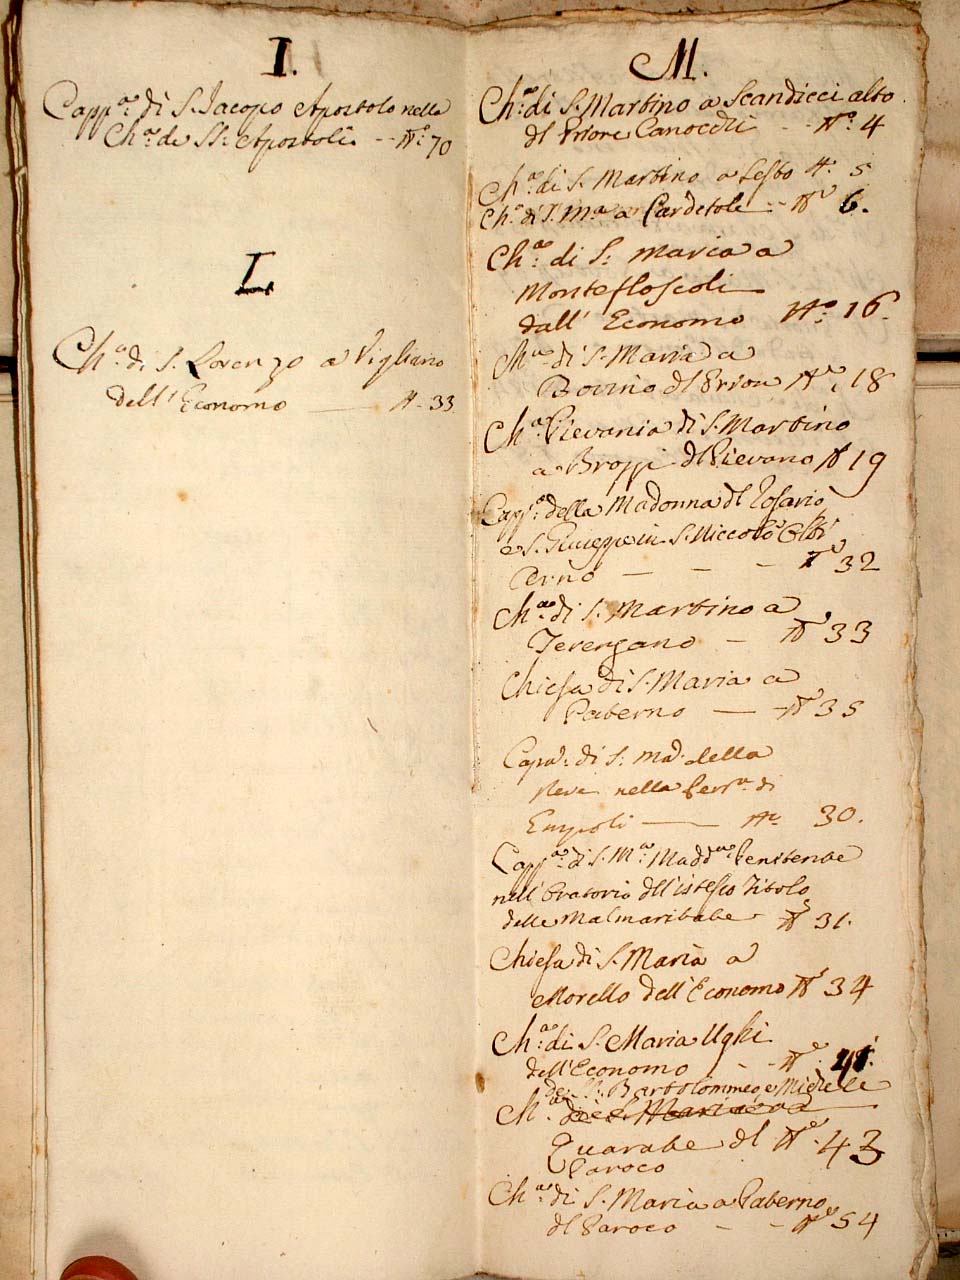 I.
Capp.ª di S. Jacopo Apostolo nella
Ch.ª de SS. Apostoli -- N.° 70
L.
Ch.ª di S. Lorenzo a Vigliano
dell'Economo — N. 33
M.
Ch.ª di S. Martino a Scandicci alto
dl Priore Canocchi -- N.° 4
Ch.ª di S. Martino a Sesto N. 5
Ch.ª di S. M.ª a Cardetole -- N.° 6.
Ch.ª di S. Maria a
Montefloscoli
dall' Economo N.° 16.
Ch.ª di S. Maria a
Bovino dl Priore N.° 18
Ch.ª Pievania di S. Martino
a Brozzi dl Pievano N 19
Capp.ª della Madonna dl Rosario
e S. Giuseppe in S. Niccolò
N.° 32
Ch.ª di S. Martino a
Terenzano — N.° 33
Chiesa di S. Maria a
Paterno — N.° 35
di S. Mad. della
Neve nella di
Empoli — N.° 30.
Capp.ª di S. M.ª Madd.na Penitente
nell'Oratorio dll'istesso Titolo
delle Malmaritate N.° 31.
Chiesa di S. Maria a
Morello dell'Economo N.° 34
Ch.ª di S. Maria Ughi
dell'Economo -- N.° 41.
de SS. Bartolommeo e Michele
Ch.ª de S. Maria a
Quarate dl N.° 43
Paroco
Ch.ª di S. Maria a Paterno
dl Paroco -- N.° 54